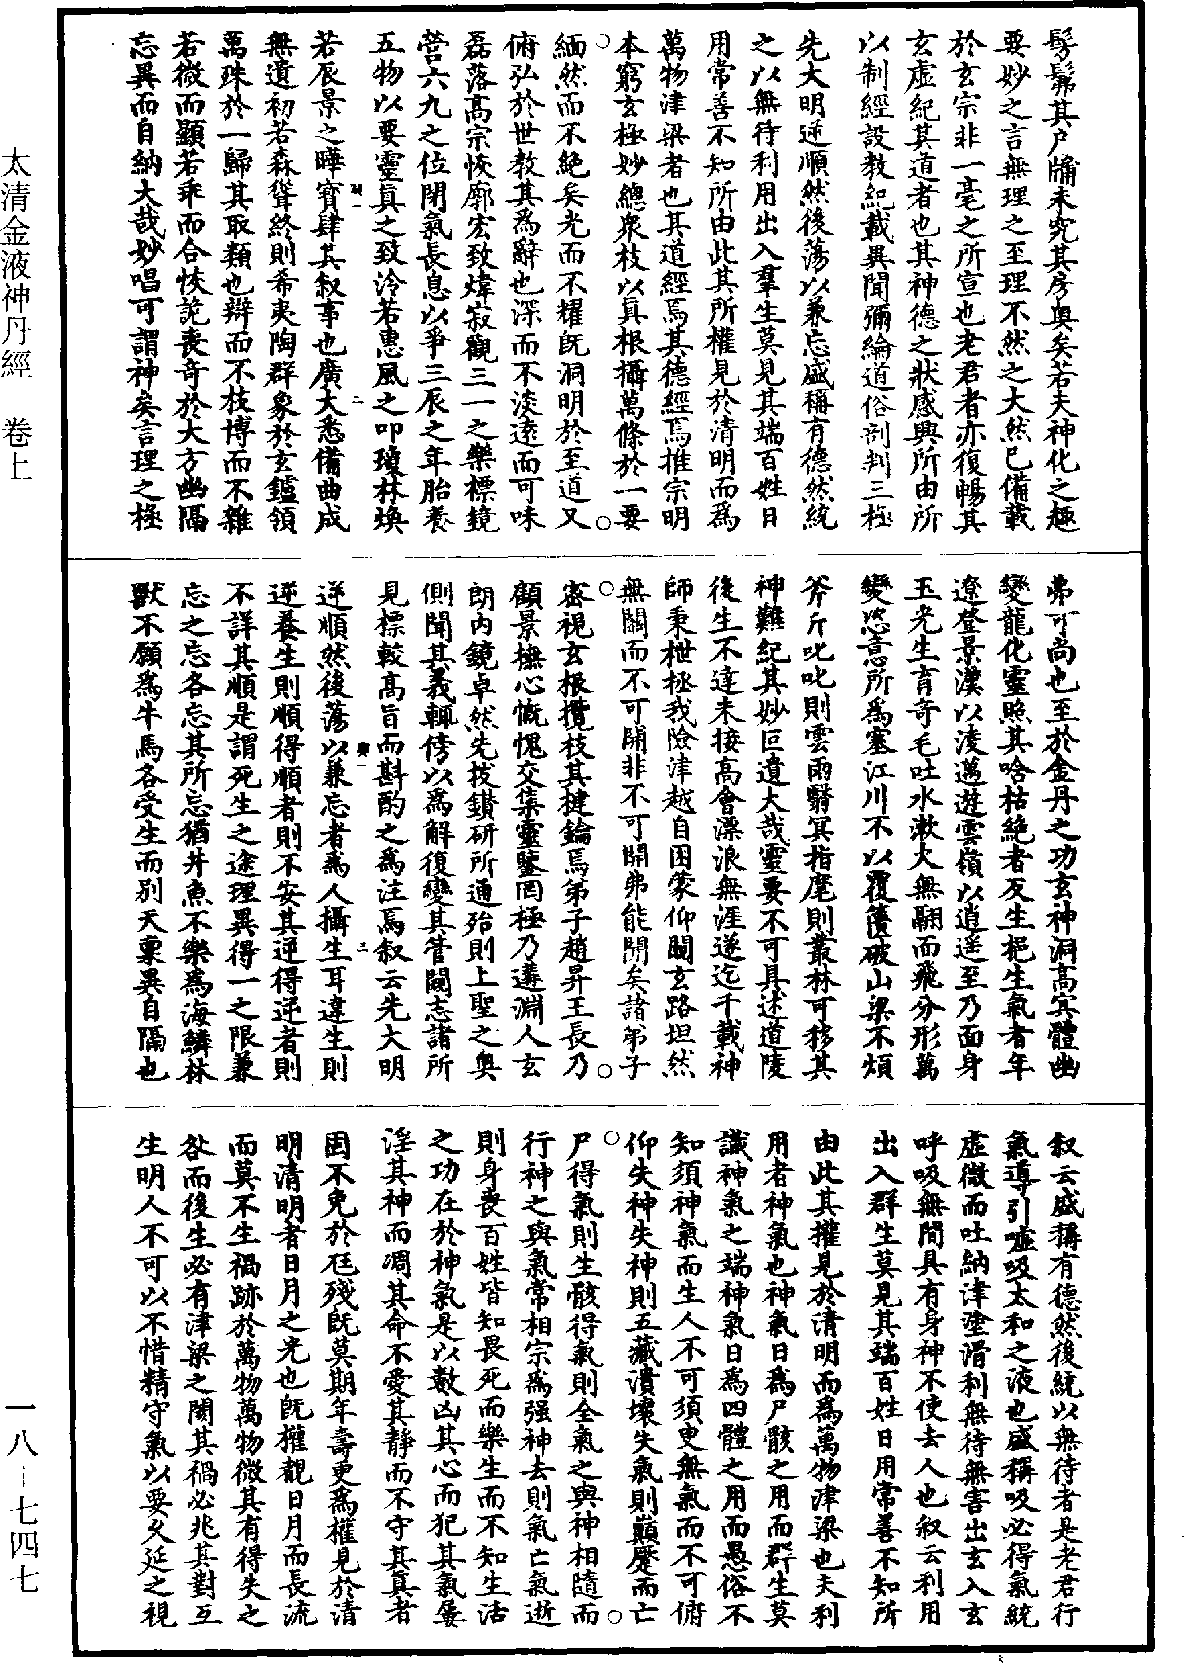 髣髴其戶牖未究其房奧矣若夫神化之趣
要妙之言無理之至理不然之大然已備載
於玄宗非一毫之所宣也老君者亦復暢其
玄虛紀其道者也其神德之狀感興所由所
以制經設教紀載異聞彌綸道俗剖判三極
先大明逆順然後蕩以兼忘盛稱有德然統
之以無待利用出入羣生莫見其端百姓日
用常善不知所由此其所權見於清明而為
萬物津梁者也其道經焉其德經焉推宗明
本窮玄極妙總衆枝以真根攝萬條於一要
緬然而不絶矣光而不耀既洞明於至道又
俯弘於世教其為辭也深而不淡遠而可味
磊落高宗恢廓宏致煒寂觀三一之樂標鏡
營六九之位閉氣長息以爭三辰之年胎養
五物以要靈真之致泠若惠風之叩瓊林煥
若辰景之曄寶肆其叙事也廣大悉備曲成
無遺初若森聳終則希夷陶群象於玄鑪領
萬殊於一歸其取類也辯而不枝博而不雜
若微而顯若乖而合恢詭喪奇於大方幽隔
忘異而自納大哉妙唱可謂神矣言理之極
弗可尚也至於金丹之功玄神洞高冥體幽
變龍化靈照其唅枯絶者反生挹生氣者年
遼登景漢以凌邁遊雲嶺以逍遥至乃面身
玉光生育奇毛吐水漱火無翮而飛分形萬
變恣意所為塞江川不以覆簣破山梁不煩
斧斤叱叱則雲雨翳冥指麾則叢林可移其
神難紀其妙叵遺大哉靈要不可具述道陵
後生不達未接高會漂浪無涯遂迄千載神
師秉枻拯我險津越自困蒙仰闚玄路坦然
無關而不可開非不可開弗能開矣諸弟子
密視玄根攬枝其揵鑰焉弟子趙昇王長乃
顧景撫心慨愧交集靈鑒罔極乃遘淵人玄
朗内鏡卓然先技鑚研所通殆則上聖之奥
側聞其義輒傍以為解復變其管闚志諸所
見標較高旨而斟酌之為注焉叙云先大明
逆順然後蕩以兼忘者為人攝生耳違生則
逆養生則順得順者則不安其逆得逆者則
不詳其順是謂死生之途理異得一之限兼
忘之忘各忘其所忘猶井魚不樂為海鱗林
獸不願為牛馬各受生而別天稟異自隔也
叙云盛稱有德然後統以無待者是老君行
氣導引噓吸太和之液也盛稱吸必得氣統
虛微而吐納津塗滑利無待無害出玄入玄
呼吸無間具有身神不使去人也叙云利用
出入群生莫見其端百姓日用常善不知所
由此其權見於清明而為萬物津梁也夫利
用者神氣也神氣日為尸骸之用而群生莫
識神氣之端神氣日為四體之用而愚俗不
知須神氣而生人不可須臾無氣而不可俯
仰失神失神則五藏潰壞失氣則顛蹷而亡
尸得氣則生骸得氣則全氣之與神相隨而
行神之與氣常相宗為强神去則氣亡氣逝
則身喪百姓皆知畏死而樂生而不知生活
之功在於神氣是以數凶其心而犯其氣屢
淫其神而凋其命不愛其靜而不守其真者
固不免於尫殘既莫期年壽更為權見於清
明清明者日月之光也既權觀日月而長流
而莫不生禍跡於萬物萬物微其有得失之
咎而後生必有津梁之關其禍必兆其對互
生明人不可以不惜精守氣以要久延之視
太清金液神丹經 卷上
一八-七四七